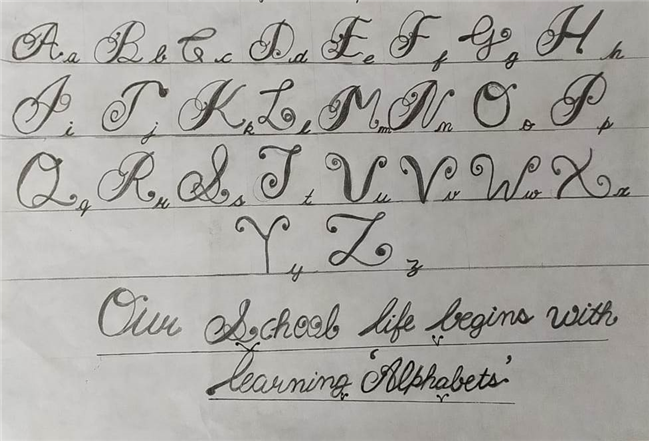 A a B b C c D d E e F f G g H h
I i J j K k L l M m N n O o P p
Q q R r S s T t U u V v W w X x
Y y Z z
Our School life begins with
learning 'Alphabets'